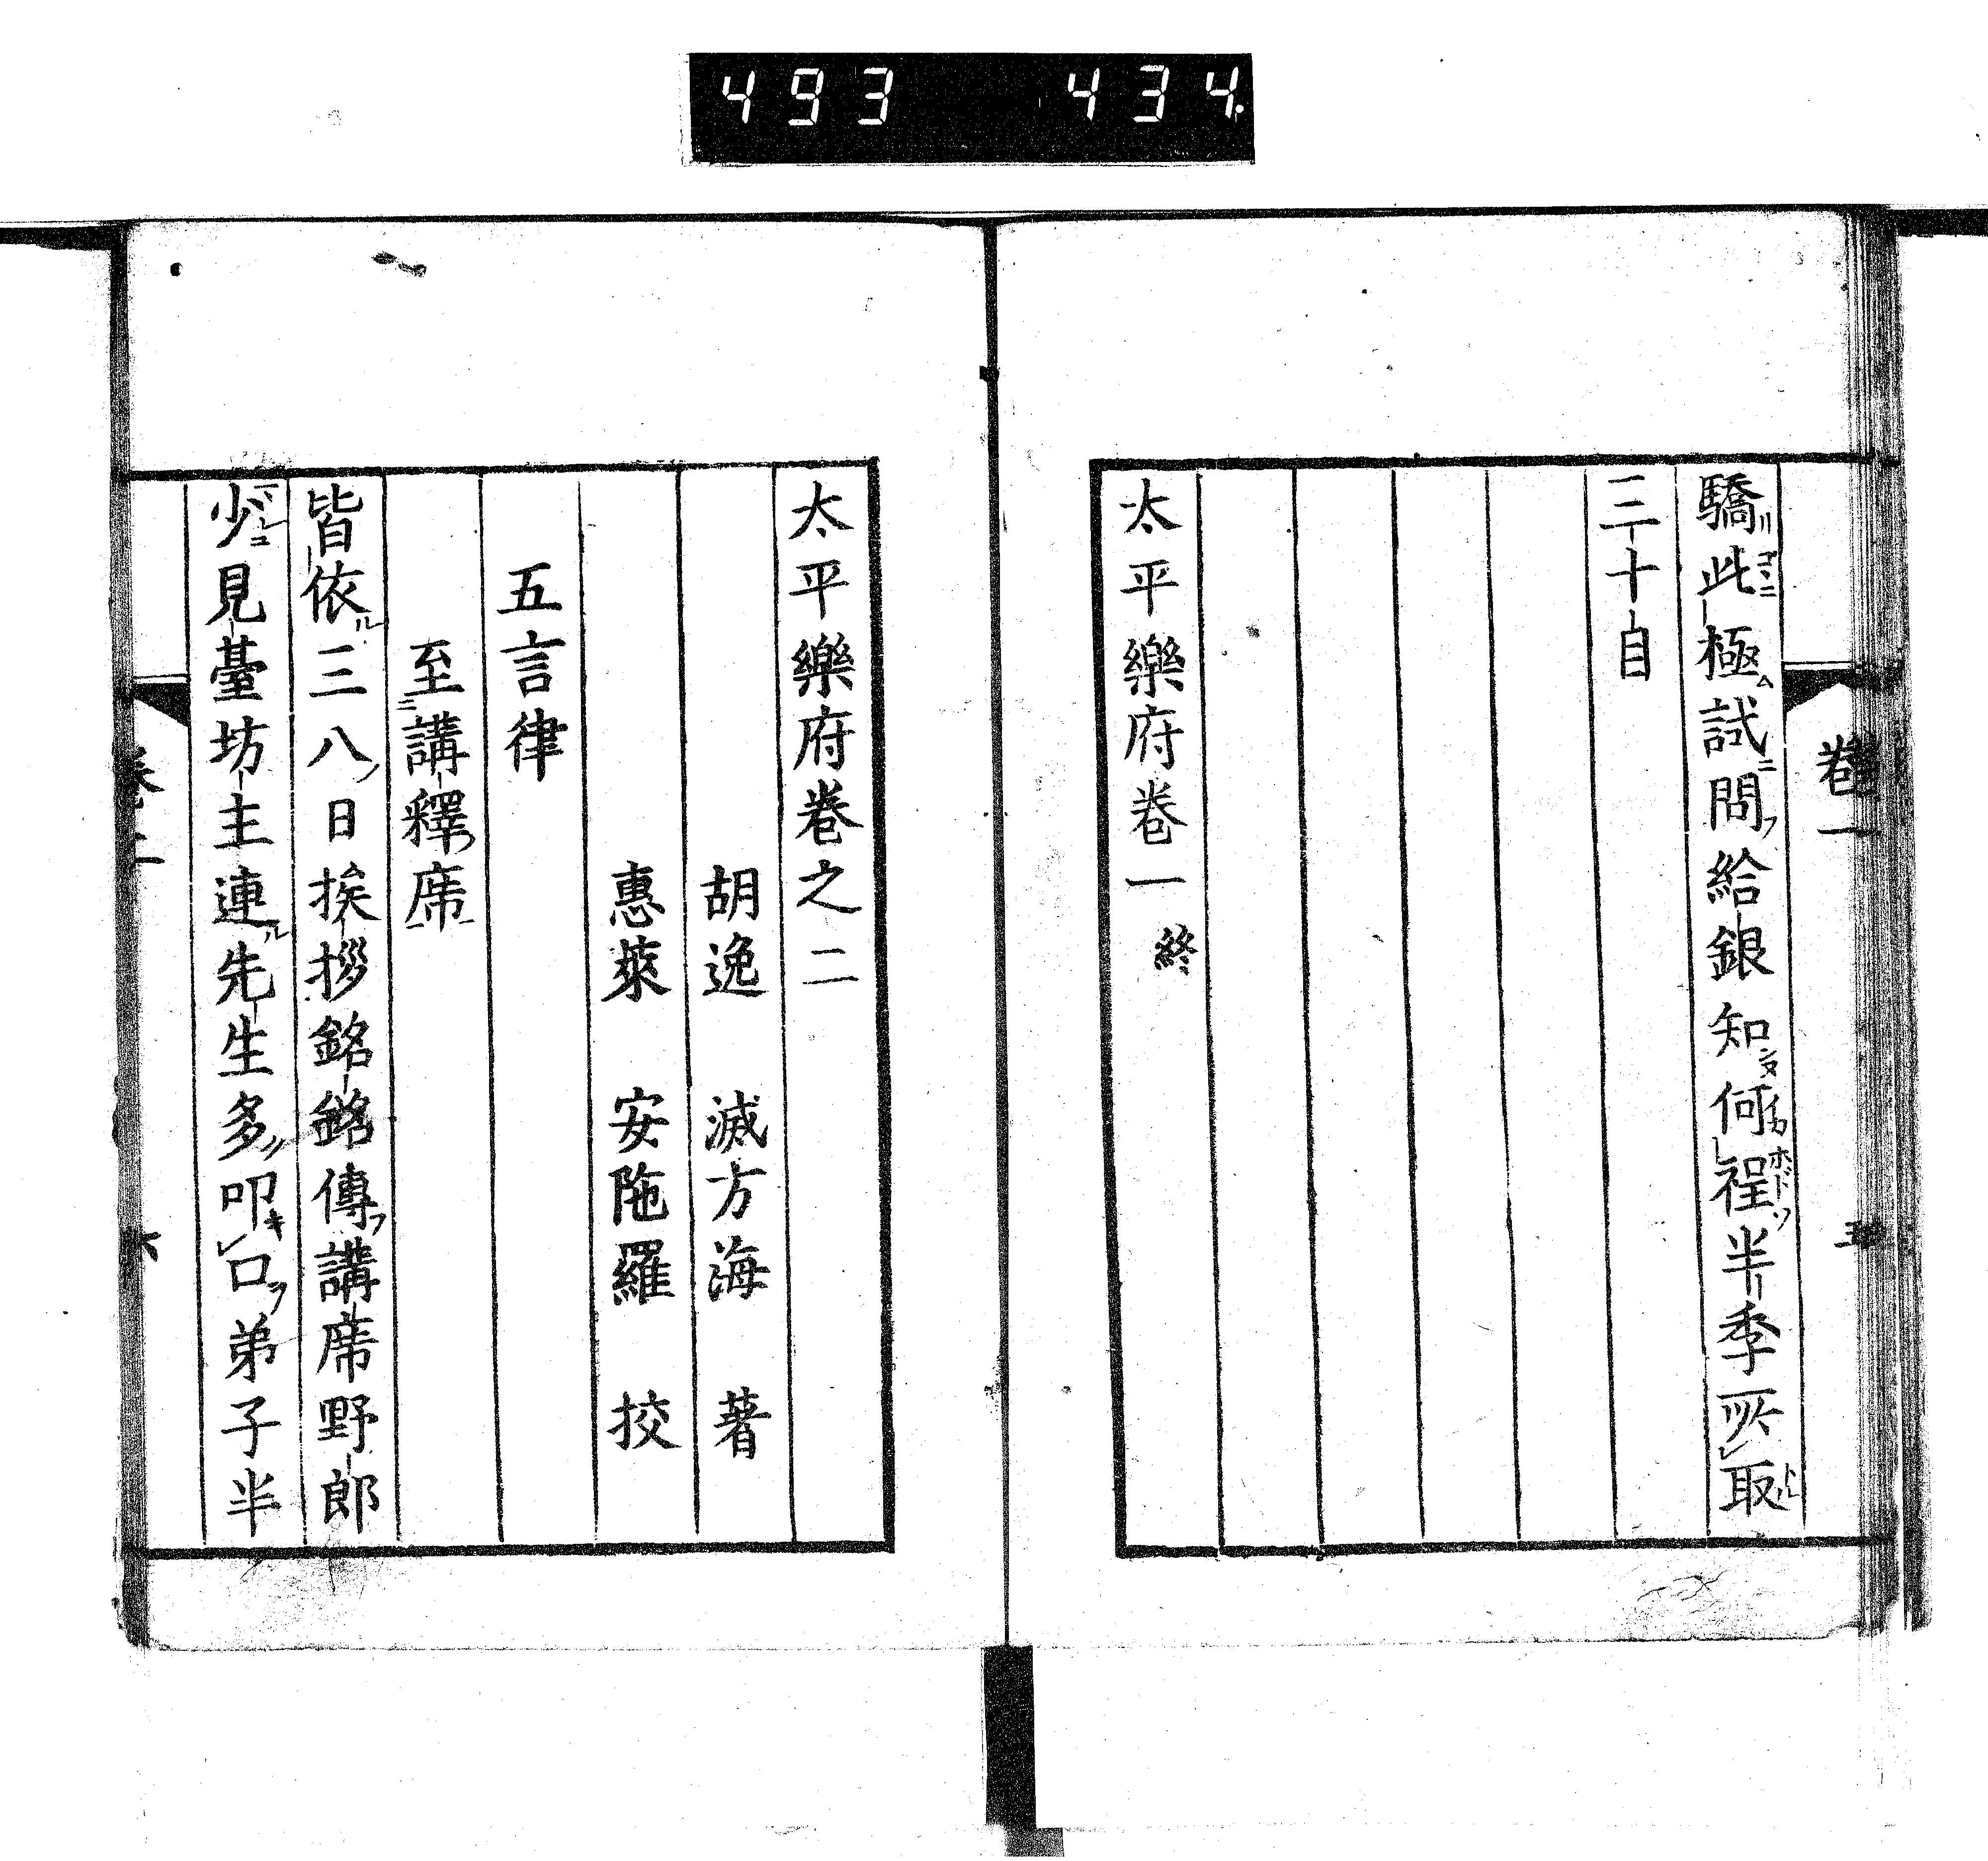 493 434
卷一
驕此極試問給銀知何程半季所取
三十目
太平樂府卷一終
五
太平樂府卷之二
胡逸 滅方海 著
惠萊 安陁羅 挍
五言律
至講釋席
皆依三八日挨拶銘銘傳講席野郎
少見臺坊主連先生多叩口弟子半
卷二
六